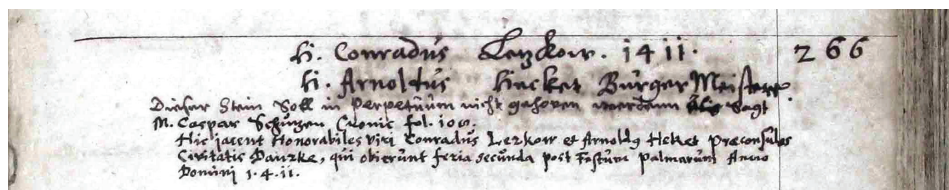 H. Conradus Letzkow. 1411. 266
H. Arnoldus Hacket Bürger Meistere.
Dieser Stein Soll in Perpetuum nicht gehoben werdenn sagt
M. Caspar Schützen Cronic fol. 106.
Hic jacent Honorabiles viri Conradus Lezkow et Arnoldq Heket Præconsules
Civitatis Danzke, qui obierunt feria secunda post Festum Palmarum Anno
Domini 1.4.11.